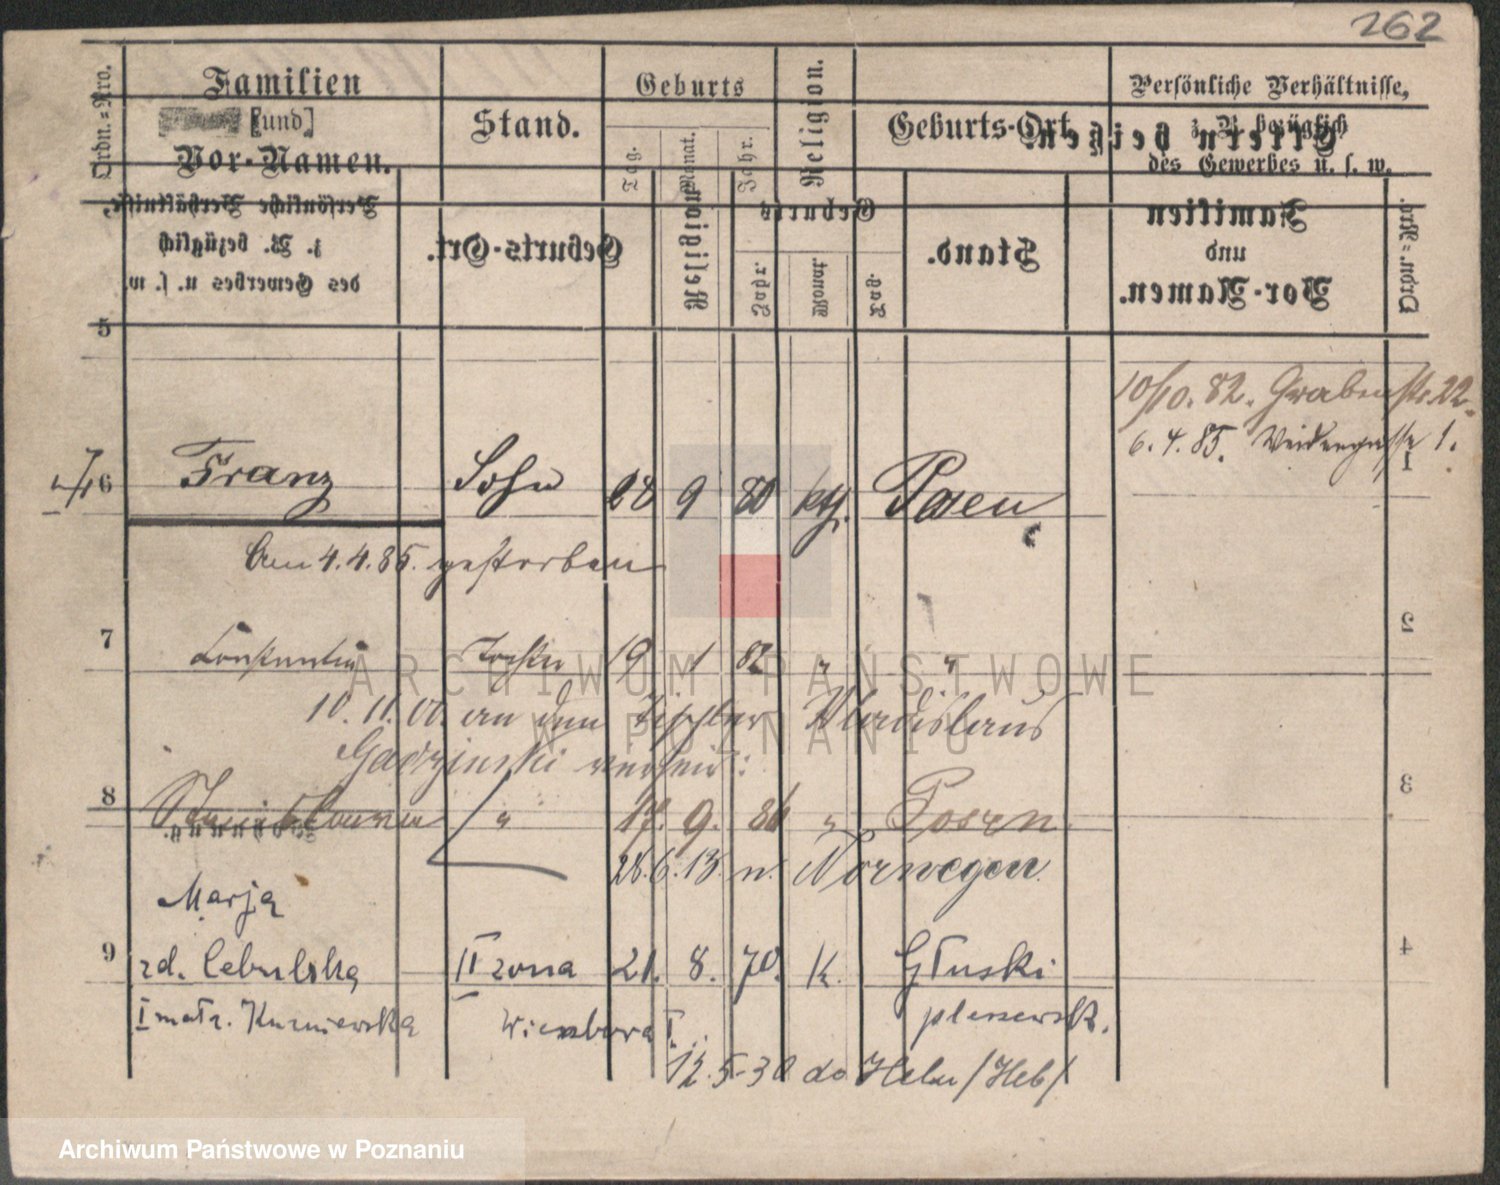 262
Ordn.=Nro.
Familien
[und]
Vor-Namen.
Stand.
Geburts
Tag.
Monat.
Jahr.
Religion.
Geburts-Ort
Persönliche Verhältnisse,
z. B. bezüglich
des Gewerbes u. s. w.
Eltern beigen
Persönliche Verhältnisse,
z. B. bezüglich
des Gewerbes u. s. w.
Geburts-Ort.
Religion
Geburts
Jahr.
Monat.
Tag.
Stand.
Familien
und
Vor-Namen.
Ordn.=Nro.
5
10/10. 82. Grabenstr. 22.
6. 4. 85. Weidengasse 1.
1
6 Franz Sohn 28 9 80 kth. Posen
Am 4. 4. 85. gestorben
2
7 Constantia Tochter 19 1 82 " "
10. 11. 00. an den Tischler Wladislaus
verh.
3
8 " 17. 9. 86 " Posen.
28. 6. 13. n. Norwegen.
Marja
4
9 zd. Cebulska II żona 21. 8. 70. K. Głuski
I matż. Kuzniewska Wiensbowa I. pleszewsk.
12. 5. 30 do /Heb/
ARCHIWUM PAŃSTWOWE
W POZNANIU
Archiwum Państwowe w Poznaniu